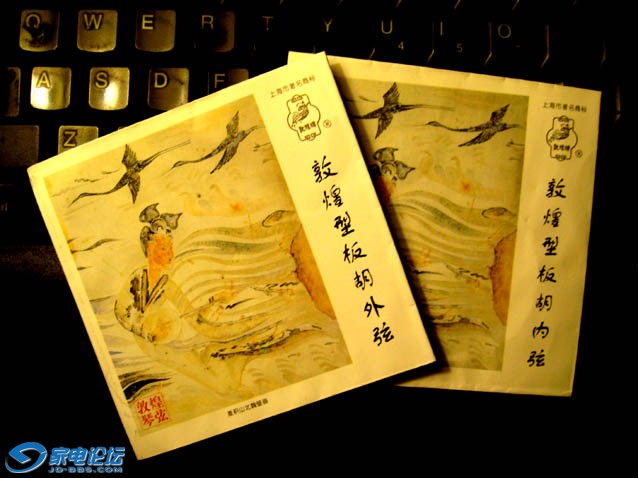 Q W E R T Y U I O
4 5
A S D F
Z
上海市著名商标
敦煌牌
®
敦煌型板胡外弦
敦煌琴弦
麦积山北魏壁画
上海市著名商标
敦煌牌
®
敦煌型板胡内弦
家电论坛
JD-BBS.COM